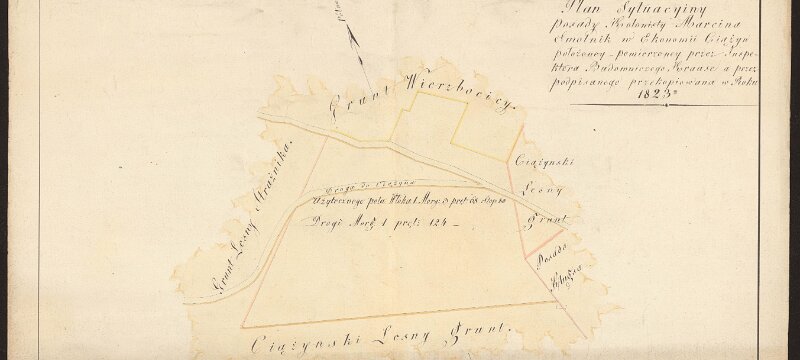 Plan Sytuacyiny
Posady Kolonisty Marcina
Smolnik w Ekonomii Ciążyn
położoney - pomierzoney przez Inspe-
ktora Budowniczego Kraase a przez
podpisanego przekopiowana w Roku
1823º
Grunt Wierzbocicy.
Grunt Lesny Strażnika.
Ciążynski
Lesny
grunt
Droga do Ciążyna
Użytecznego pola Włoka 1 Morg: 3 pręt: 68 stop 50
Drogi Morg 1 pręt: 124 -
Posada
Ciążynski Lesny grunt.